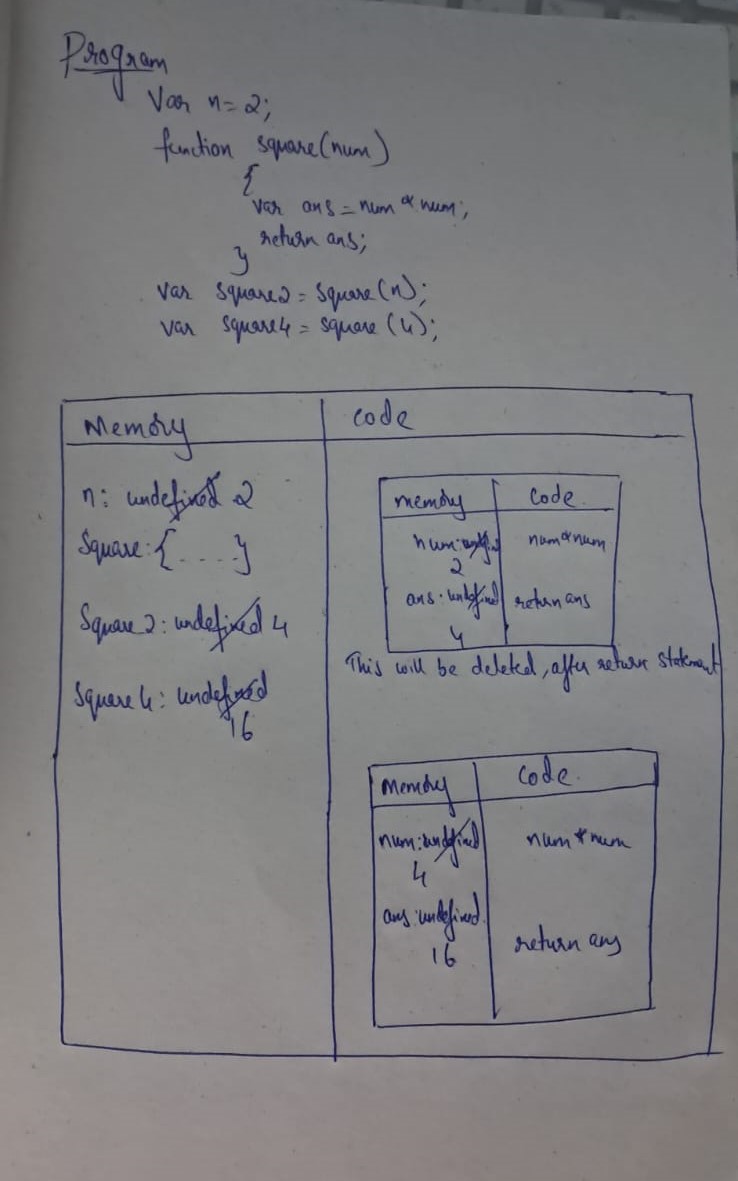 Program
Var n = 2;
function square(num)
{
var ans = num * num;
return ans;
}
var square2 = square(n);
var square4 = square (4);
Memory
code
n: undefined 2
Square: {....}
Square2: undefined 4
Square4: undefined
16
memory
code
num: undefined
num * num
2
ans: undefined
return ans
4
This will be deleted, after return statement
Memory
code
num: undefined
num * num
4
ans: undefined
return ans
16